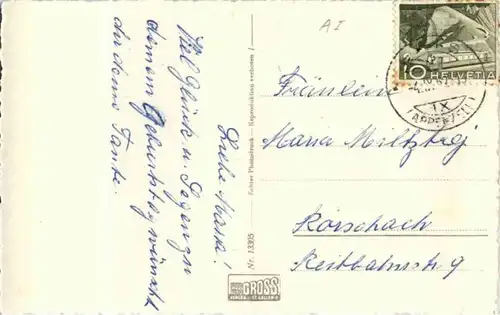 Liebe Maria!
Viel Glück u. Segen zu
deinem Geburtstag wünscht
dir deine Tante.
AI
10 HELVETIA
IX
(APPENZELL)
Fräulein
Maria
Rorschach
Reitbahnstr. 9
Echter Photodruck — Reproduktion verboten!
Nr. 13305
GROSS